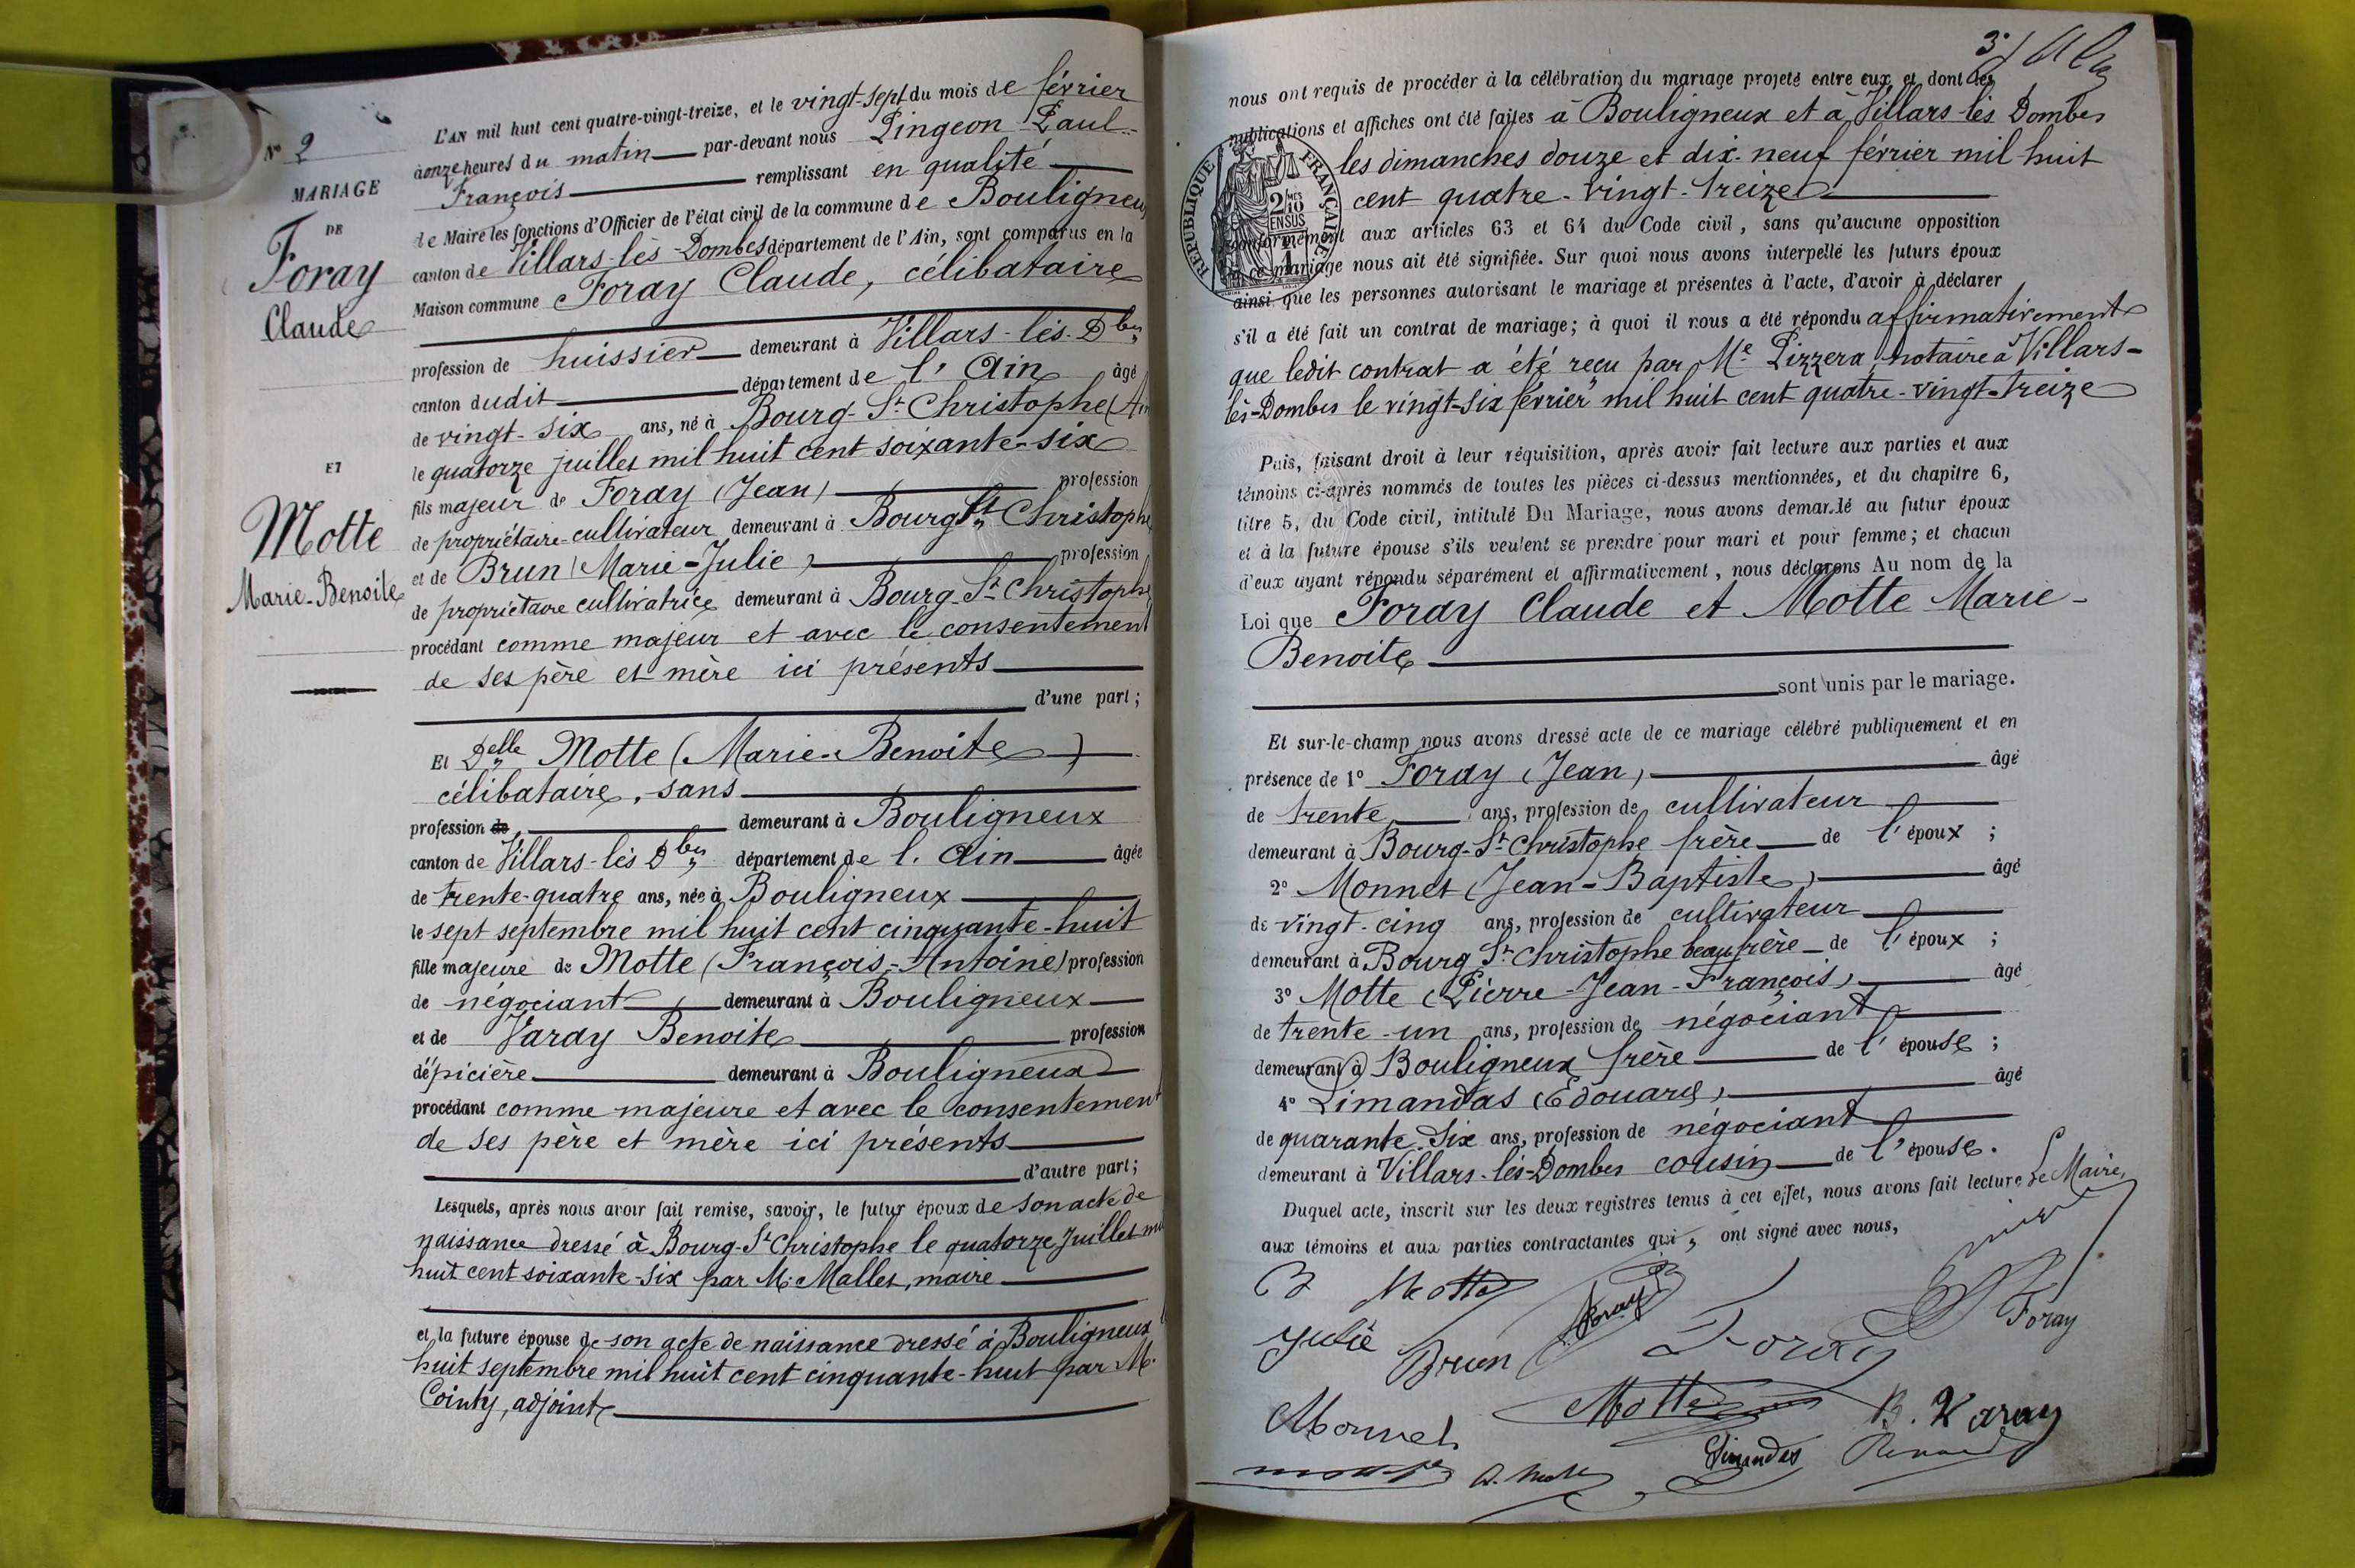 N° 2
MARIAGE
DE
Foray
Claude
ET
Motte
Marie-Benoite
L'AN mil huit cent quatre-vingt-treize, et le vingt-sept du mois de février
à onze heures du matin par-devant nous Pingeon Paul-
François remplissant en qualité
de Maire les fonctions d'Officier de l'état civil de la commune de Bouligneux
canton de Villars-lès-Dombes département de l'Ain, sont comparus en la
Maison commune Foray Claude, célibataire
profession de huissier demeurant à Villars-lès-Dbes
canton dudit département de l'Ain âgé
de vingt-six ans, né à Bourg-St Christophe (Ain
le quatorze juillet mil huit cent soixante-six
fils majeur de Foray (Jean) profession
de propriétaire-cultivateur demeurant à Bourg St Christophe
et de Brun (Marie-Julie) profession
de propriétaire cultivatrice demeurant à Bourg-St Christophe
procédant comme majeur et avec le consentement
de ses père et mère ici présents
d'une part;
Et Delle Motte (Marie-Benoite)
célibataire, sans
profession de demeurant à Bouligneux
canton de Villars-lès Dbes département de l'Ain âgée
de trente-quatre ans, née à Bouligneux
le sept septembre mil huit cent cinquante-huit
fille majeure de Motte (François-Antoine) profession
de négociant, demeurant à Bouligneux
et de Varay Benoite profession
d'épicière demeurant à Bouligneux
procédant comme majeure et avec le consentement
de ses père et mère ici présents
d'autre part;
Lesquels, après nous avoir fait remise, savoir, le futur époux de son acte de
naissance dressé à Bourg-St Christophe le quatorze Juillet mil
huit cent soixante-six par M. Mallet, maire
et la future épouse de son acte de naissance dressé à Bouligneux
huit septembre mil huit cent cinquante-huit par M.
Cointy, adjoint
3e
nous ont requis de procéder à la célébration du mariage projeté entre eux et dont les
publications et affiches ont été faites à Bouligneux et à Villars-lès Dombes
les dimanches douze et dix-neuf février mil huit
cent quatre-vingt-treize
RÉPUBLIQUE FRANÇAISE
2 MES
10
EN SUS
conformément aux articles 63 et 64 du Code civil, sans qu'aucune opposition
à ce mariage nous ait été signifiée. Sur quoi nous avons interpellé les futurs époux
ainsi que les personnes autorisant le mariage et présentes à l'acte, d'avoir à déclarer
s'il a été fait un contrat de mariage; à quoi il nous a été répondu affirmativement
que ledit contrat a été reçu par Me Pizzera, notaire à Villars-
lès-Dombes le vingt-six février mil huit cent quatre-vingt-treize
Puis, faisant droit à leur réquisition, après avoir fait lecture aux parties et aux
témoins ci-après nommés de toutes les pièces ci-dessus mentionnées, et du chapitre 6,
titre 5, du Code civil, intitulé Du Mariage, nous avons demandé au futur époux
et à la future épouse s'ils veulent se prendre pour mari et pour femme; et chacun
d'eux ayant répondu séparément et affirmativement, nous déclarons Au nom de la
Loi que Foray Claude et Motte Marie-
Benoite
sont unis par le mariage.
Et sur-le-champ nous avons dressé acte de ce mariage célébré publiquement et en
présence de 1° Foray (Jean) âgé
de trente ans, profession de cultivateur
demeurant à Bourg-St Christophe frère de l'époux;
2° Monnet (Jean-Baptiste) âgé
de vingt-cinq ans, profession de cultivateur
demeurant à Bourg St Christophe beau frère de l'époux;
3° Motte (Pierre-Jean-François) âgé
de trente-un ans, profession de négociant
demeurant à Bouligneux frère de l'épouse;
4° Limandas (Edouard) âgé
de quarante six ans, profession de négociant
demeurant à Villars-lès-Dombes cousin de l'épouse.
Duquel acte, inscrit sur les deux registres tenus à cet effet, nous avons fait lecture Le Maire,
aux témoins et aux parties contractantes qui, ont signé avec nous,
B Motte
Foray
Foray
Julie Brun
Foray
Monnet
Motte
B. Varay
Limandas